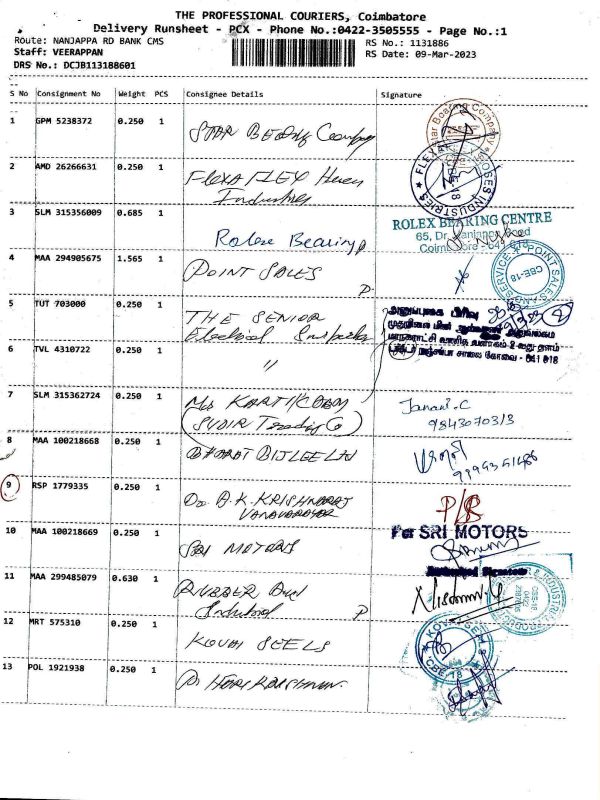 THE PROFESSIONAL COURIERS, Coimbatore
Delivery Runsheet - PCX - Phone No.:0422-3505555 - Page No.:1
Route: NANJAPPA RD BANK CMS
RS No.: 1131886
Staff: VEERAPPAN
RS Date: 09-Mar-2023
DRS No.: DCJB113188601
S No Consignment No Weight PCS Consignee Details Signature
1 GPM 5238372 0.250 1
STAR Bearing Company
Star Bearing Company
2 AMD 26266631 0.250 1
FLEXA FLEX Hoses
Industries
FLEXA HOSES INDUSTRIES
3 SLM 315356009 0.685 1
Rolex Bearing
ROLEX BEARING CENTRE
65, Dr. Nanjappa Road
Coimbatore - 641 018
4 MAA 294905675 1.565 1
POINT SALES
P
POINT SALES SERVICE
CBE-18
5 TUT 703000 0.250 1
THE SENIOR
Electrical Inspector
அனுப்புகை பிரிவு
முதுநிலை மின் ஆய்வாளர் அலுவலகம்
மாநகராட்சி வணிக வளாகம் 2-வது தளம்
நஞ்சப்பா சாலை கோவை - 641 018
6 TVL 4310722 0.250 1
"
7 SLM 315362724 0.250 1
(SUDIR Trading Co)
Janani.C
9843070313
8 MAA 100218668 0.250 1
BHARAT BIJLEE Ltd
9 RSP 1779335 0.250 1
Dr A.K. KRISHNARAJ
VANAVARAYAR
P/S
10 MAA 100218669 0.250 1
SRI MOTORS
For SRI MOTORS
11 MAA 299485079 0.630 1
RUBBER And
Industrial
P
12 MRT 575310 0.250 1
KOVAI SEELS
KOVAI SEALS
CBE-18
13 POL 1921938 0.250 1
P HARI KRISHNAN.